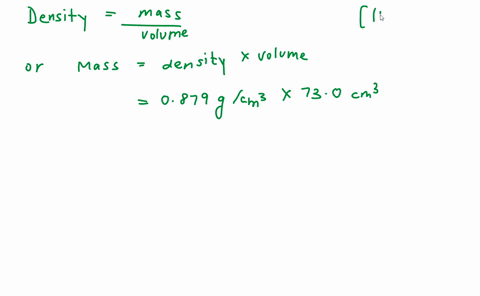 Density = mass / volume [1
or Mass = density × volume
= 0.879 g/cm³ × 73.0 cm³